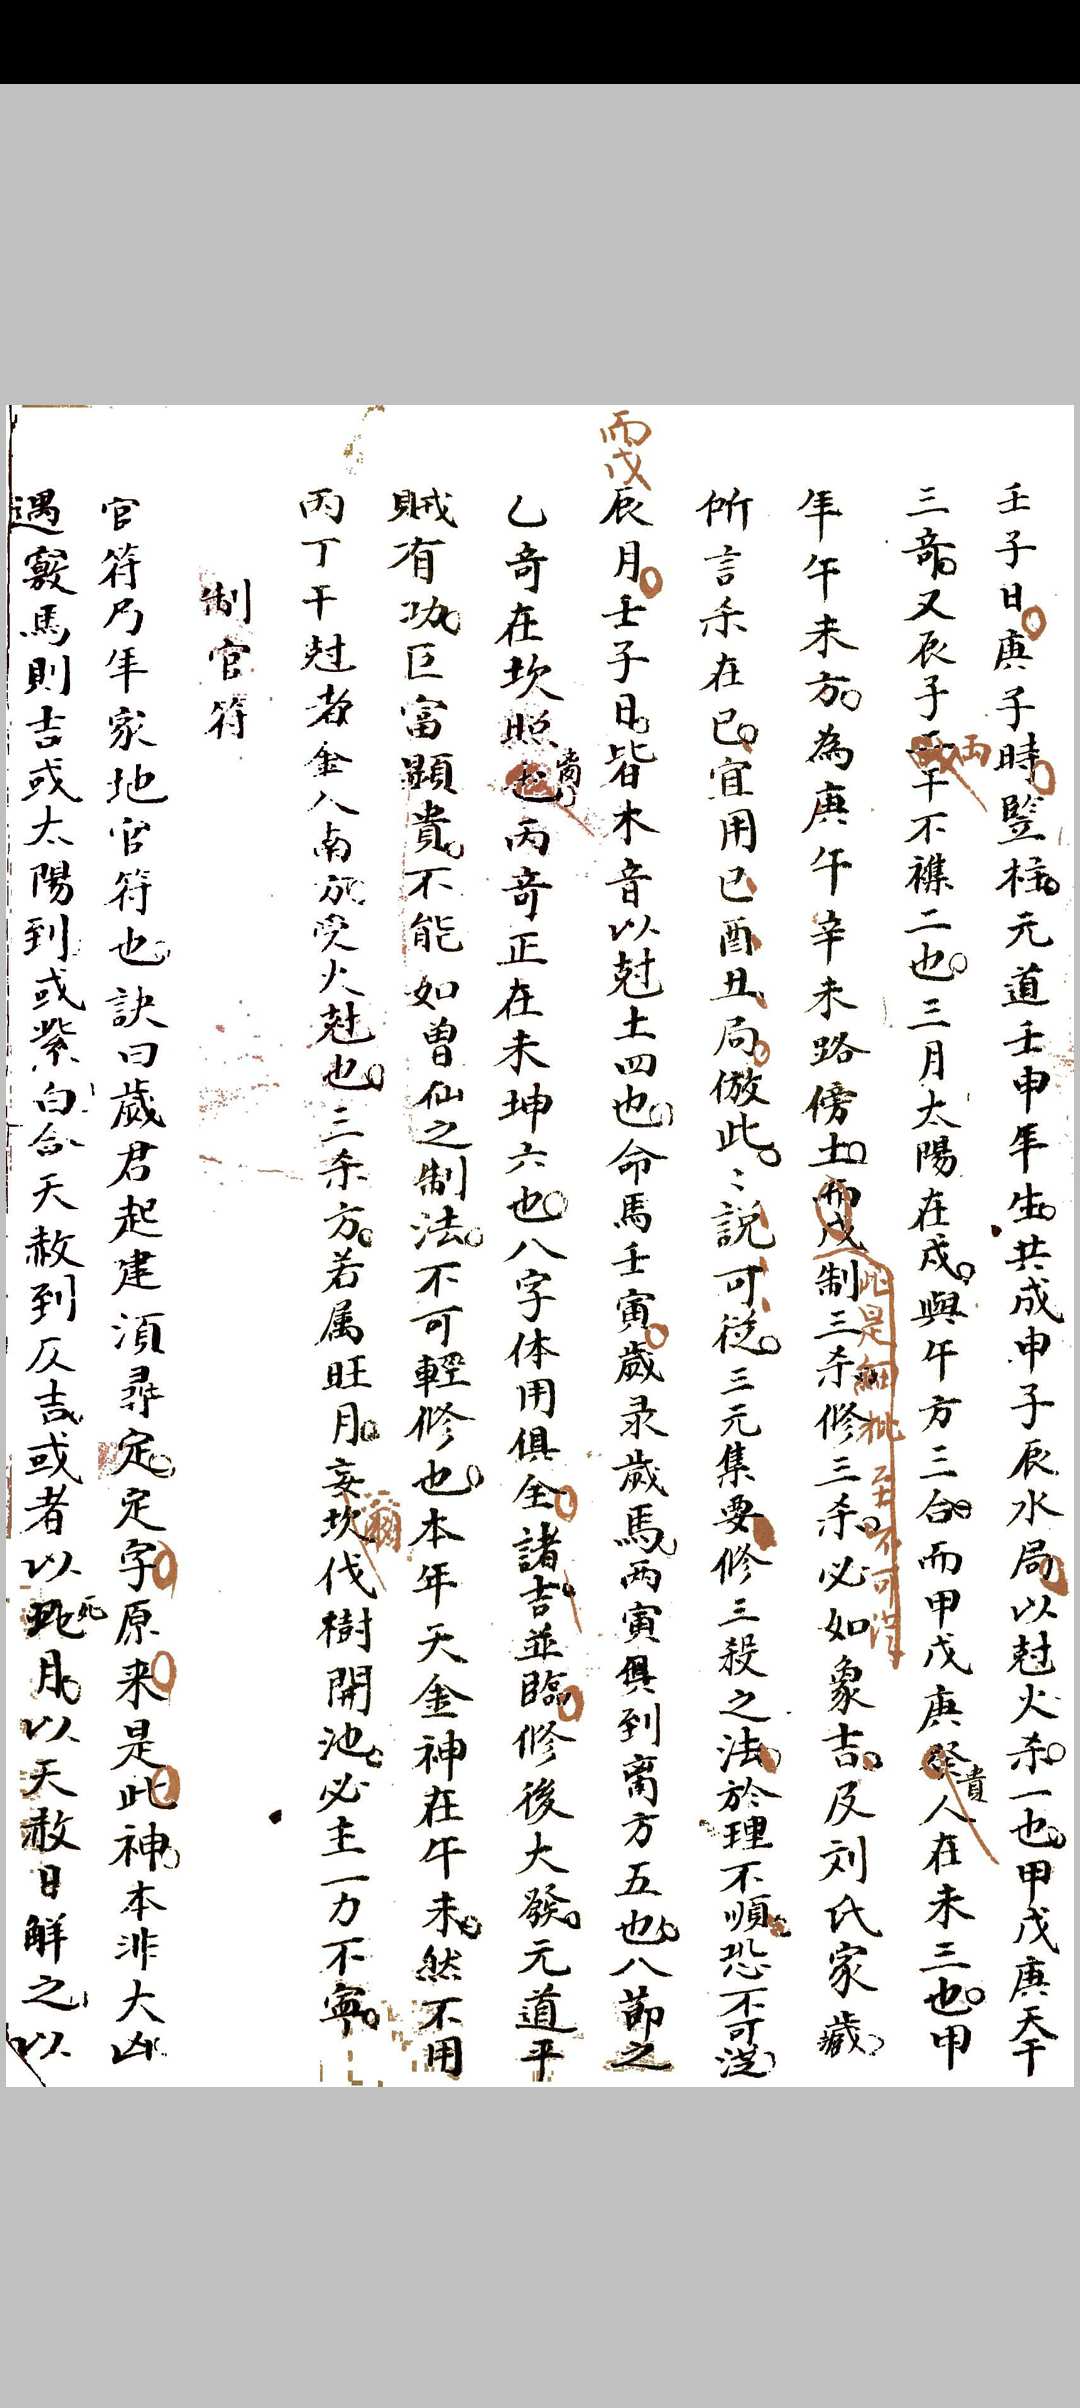 壬子日庚子時豎柱元道壬申年生共成申子辰水局以尅火杀一也甲戊庚天干
三奇又辰子干不襍二也三月太陽在戌與午方三合而甲戊庚貴人在未三也甲
年午未方為庚午辛未路傍土丙戌制三杀修三杀必如象吉及刘氏家藏
此是細批 至不可
所言杀在巳宜用巳酉丑局倣此〻說可從三元集要修三殺之法於理不順恐不可從
丙戊
辰月壬子日皆木音以尅土四也命馬壬寅歲录歲馬丙寅俱到离方五也八節之
乙奇在坎照离丙奇正在未坤六也八字体用俱全諸吉並臨修後大發元道平
賊有功巨富顯貴不能如曽仙之制法不可輕修也本年天金神在午未然不用
丙丁干尅者金入南方受火尅也三杀方若属旺月妄坎伐樹開池必主一力不寧
制官符
官符乃年家地官符也訣曰歲君起建湏尋定定字原来是此神本非大凶
遇竅馬則吉或太陽到或紫白合天赦到仄吉或者以死月以天赦日解之以